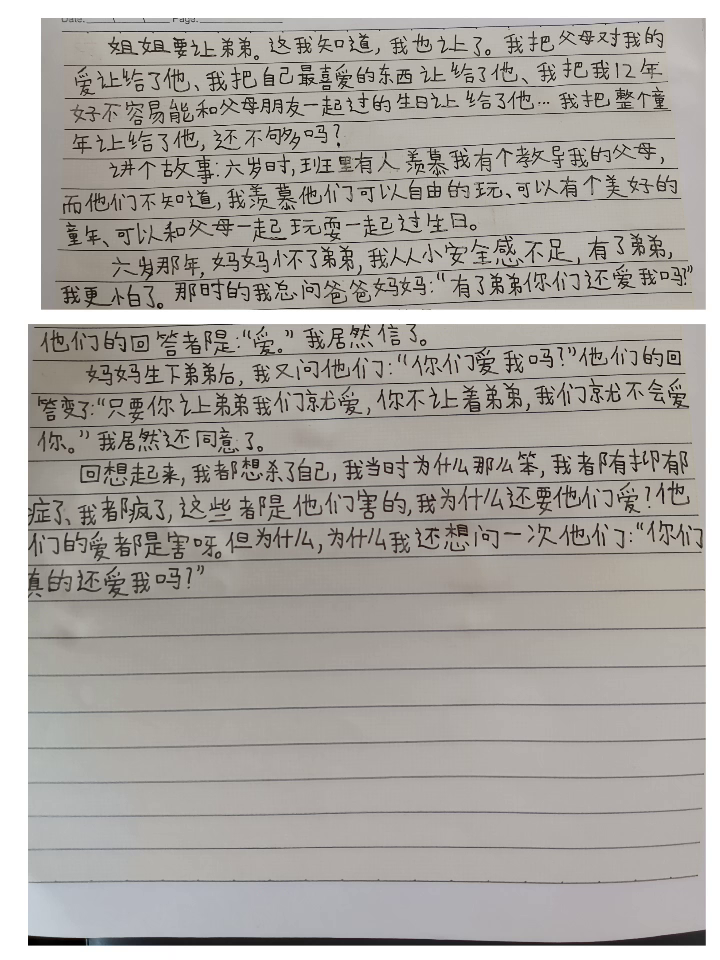 Date: Page:
姐姐要让弟弟。这我知道，我也让了。我把父母对我的
爱让给了他、我把自己最喜爱的东西让给了他、我把我12年
好不容易能和父母朋友一起过的生日让给了他…我把整个童
年让给了他，还不够吗？
讲个故事：六岁时，班里有人羡慕我有个教导我的父母，
而他们不知道，我羡慕他们可以自由的玩、可以有个美好的
童年、可以和父母一起玩耍一起过生日。
六岁那年，妈妈怀了弟弟，我从小安全感不足，有了弟弟，
我更怕了。那时的我总问爸爸妈妈：“有了弟弟你们还爱我吗？”
他们的回答都是：“爱。”我居然信了。
妈妈生下弟弟后，我又问他们：“你们爱我吗？”他们的回
答变了：“只要你让弟弟我们就爱，你不让着弟弟，我们就不会爱
你。”我居然还同意了。
回想起来，我都想杀了自己，我当时为什么那么笨，我都有抑郁
症了、我都疯了，这些都是他们害的，我为什么还要他们爱？他
们的爱都是害呀。但为什么，为什么我还想问一次他们：“你们
真的还爱我吗？”